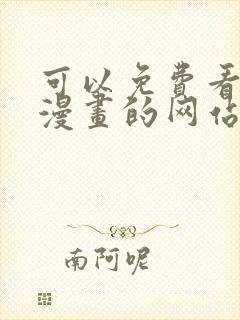 可以免费看
漫畫的网站
南阿呢